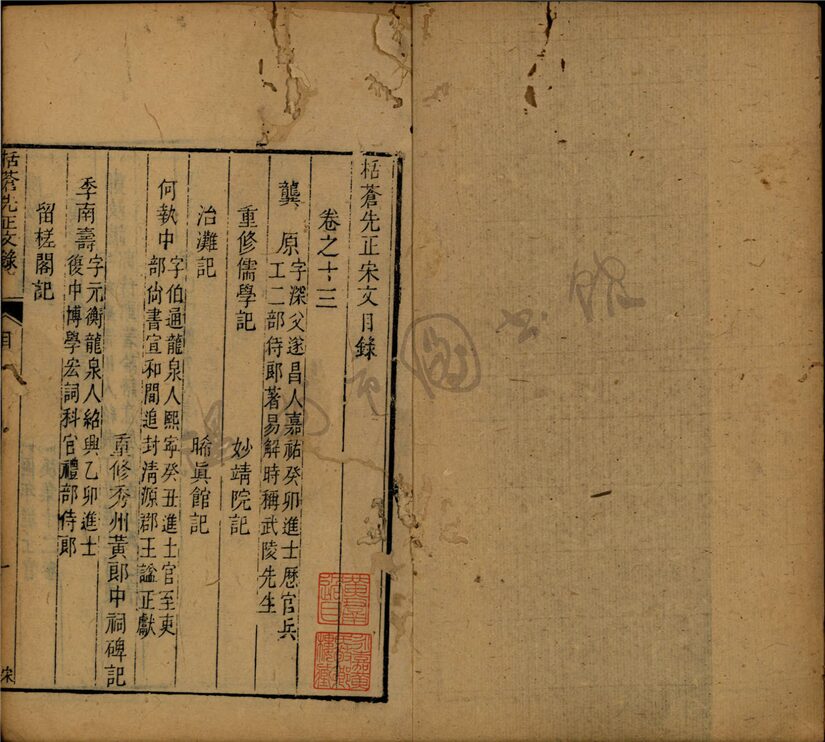 栝蒼先正宋文目錄
卷之十三
龔　原字深父遂昌人嘉祐癸卯進士歷官兵
工二部侍郎著易解時稱武陵先生
重修儒學記　妙靖院記
治灘記　晞眞館記
何執中字伯通龍泉人熙寧癸丑進士官至吏
部尙書宣和間追封清源郡王謚正獻
重修秀州黃郎中祠碑記
季南壽字元衡龍泉人紹興乙卯進士
復中博學宏詞科官禮部侍郎
留槎閣記
栝蒼先正文錄
目
一
宋
黃羣
圖書館